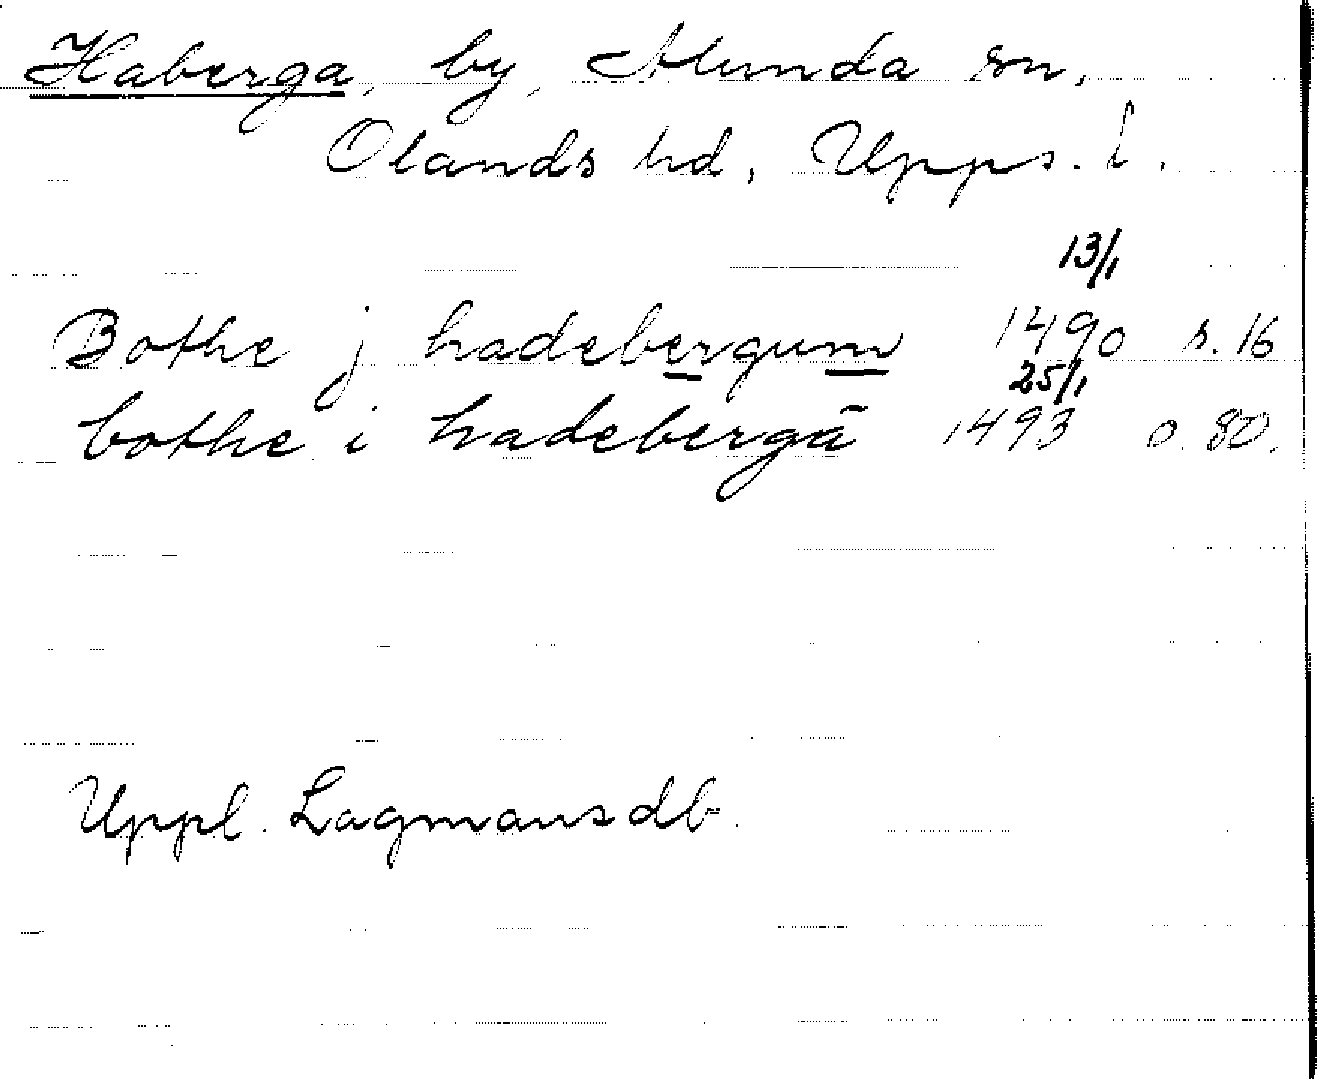 Haberga, by, Alunda sn,
Olands hd, Upps. l.
13/1
Bothe j hadebergum 1490 s. 16
25/1
bothe i hadebergā 1493 s. 80.
Uppl. Lagmansdb.